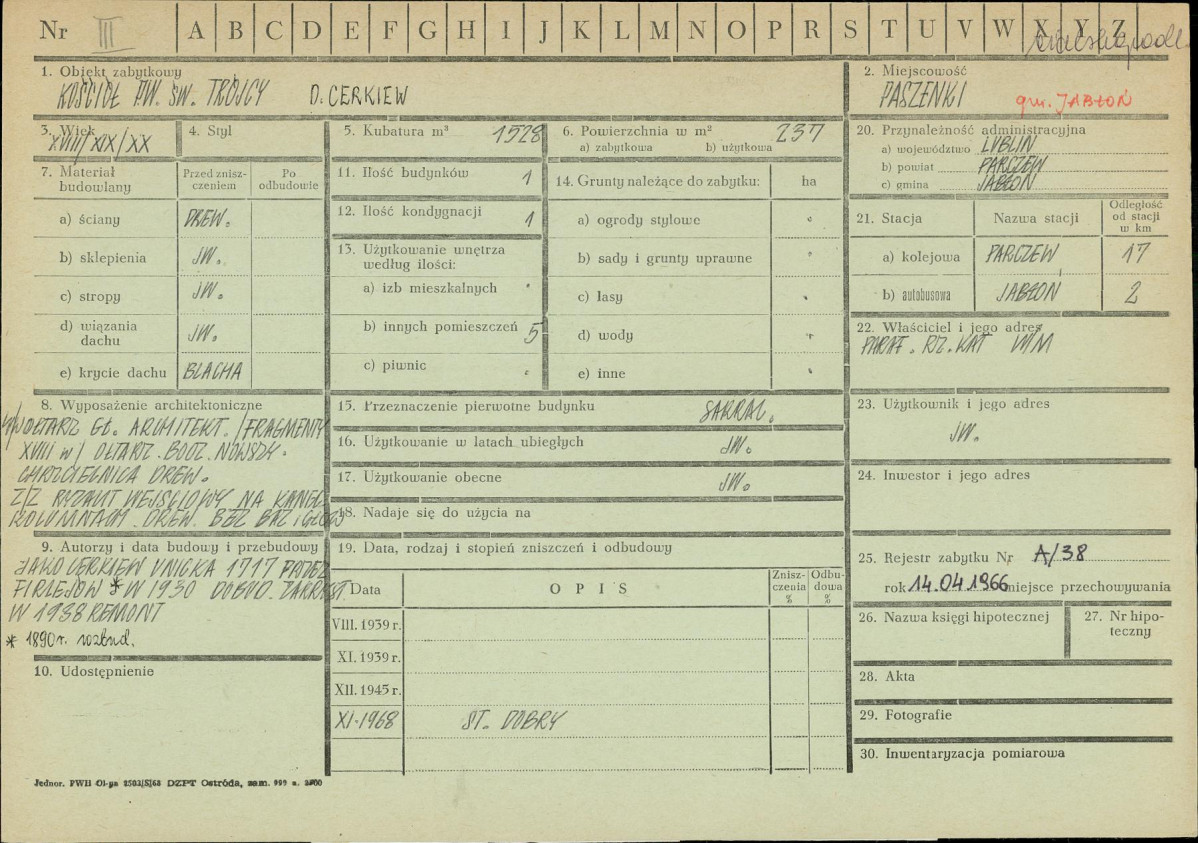 Nr III A B C D E F G H I J K L M N O P R S T U V W X Y Z
1. Obiekt zabytkowy
KOŚCIÓŁ P.W. ŚW. TRÓJCY D. CERKIEW
2. Miejscowość
PASZENKI gm. JABŁOŃ
3. Wiek
XVIII/XIX/XX
4. Styl
5. Kubatura m³ 1528
6. Powierzchnia w m² 237
a) zabytkowa b) użytkowa
7. Materiał budowlany
Przed znisz-
czeniem
Po
odbudowie
a) ściany DREW.
b) sklepienia JW.
c) stropy JW.
d) wiązania
dachu JW.
e) krycie dachu BLACHA
11. Ilość budynków 1
12. Ilość kondygnacji 1
13. Użytkowanie wnętrza
według ilości:
a) izb mieszkalnych
b) innych pomieszczeń 5
c) piwnic
14. Grunty należące do zabytku: ha
a) ogrody stylowe
b) sady i grunty uprawne
c) lasy
d) wody
e) inne
20. Przynależność administracyjna
a) województwo LUBLIN
b) powiat PARCZEW
c) gmina JABŁOŃ
21. Stacja Nazwa stacji
Odległość
od stacji
w km
a) kolejowa PARCZEW 17
b) autobusowa JABŁOŃ 2
22. Właściciel i jego adres
PARAF. RZ. KAT W/M
23. Użytkownik i jego adres
JW.
24. Inwestor i jego adres
25. Rejestr zabytku Nr A/38
rok 14.04.1966 miejsce przechowywania
26. Nazwa księgi hipotecznej
27. Nr hipo-
teczny
28. Akta
29. Fotografie
30. Inwentaryzacja pomiarowa
8. Wyposażenie architektoniczne
OŁTARZ GŁ. ARCHITEKT. /FRAGMENTY
XVIII w/ OŁTARZ. BOCZ. NOWSZY.
CHRZCIELNICA DREW.
WEJŚCIOWY NA
KOLUMNACH. DREW. BEZ BAZ i GŁOWIC
9. Autorzy i data budowy i przebudowy
JAKO CERKIEW UNICKA 1717 PRZEZ
FIRLEJÓW * W 1930 DOBUD. ZAKRYST.
W 1938 REMONT
* 1890 r. rozbud.
10. Udostępnienie
15. Przeznaczenie pierwotne budynku SAKRAL.
16. Użytkowanie w latach ubiegłych JW.
17. Użytkowanie obecne JW.
18. Nadaje się do użycia na
19. Data, rodzaj i stopień zniszczeń i odbudowy
Data OPIS
Znisz-
czenia
%
Odbu-
dowa
%
VIII. 1939 r.
XI. 1939 r.
XII. 1945 r.
XI-1968 ST. DOBRY
Jednor. PWH Ol-pa 2503/S/68 DZPT Ostróda, zam. 999 n. 2500